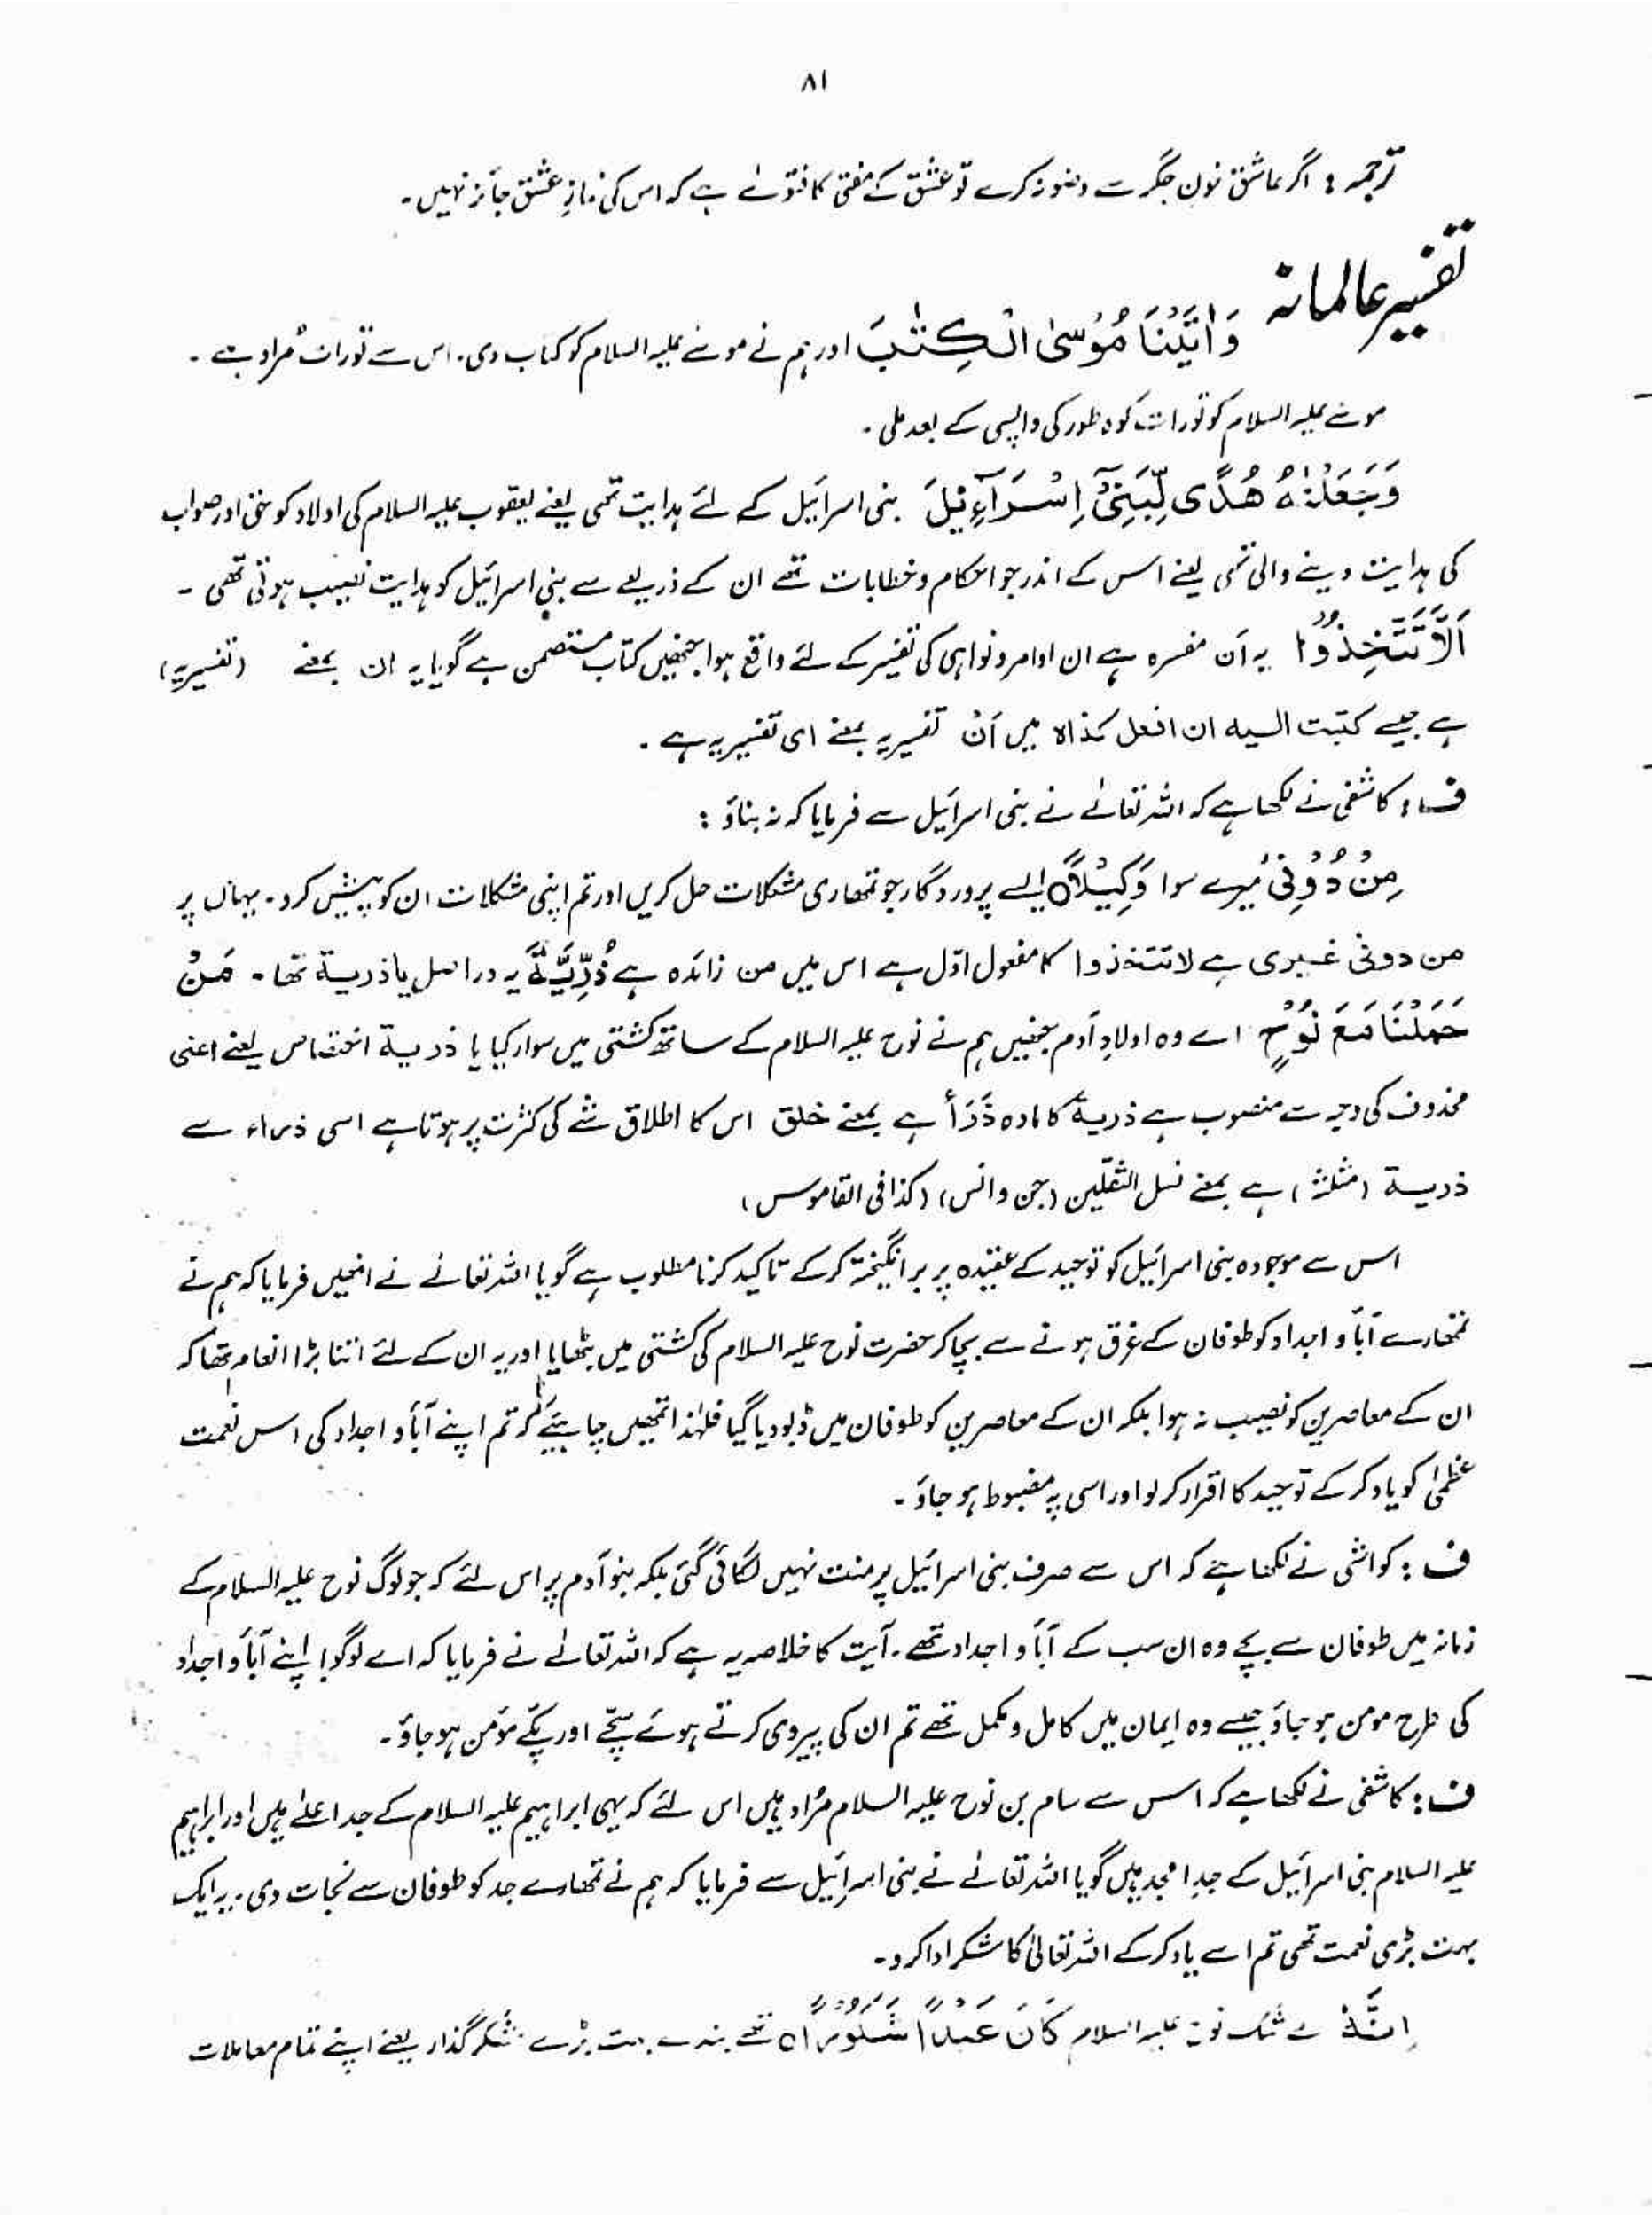 ۸۱
ترجمہ : اگر عاشق خون جگر سے وضو نہ کرے تو عشق کے مفتی کا فتوٰے ہے کہ اس کی نمازِ عشق جائز نہیں ۔
تفسیر عالمانہ
وَاٰتَيْنَا مُوْسَى الْكِتٰبَ اور ہم نے موسٰے علیہ السلام کو کتاب دی ۔ اس سے تورات مُراد ہے ۔
موسٰے علیہ السلام کو تورات کوہ طور کی واپسی کے بعد ملی ۔
وَجَعَلْنٰهُ هُدًى لِّبَنِىْٓ اِسْرَآءِيْلَ بنی اسرائیل کے لئے ہدایت تھی یعنے یعقوب علیہ السلام کی اولاد کو حق اور صواب
کی ہدایت دینے والی تھی یعنے اس کے اندر جو احکام و خطابات تھے ان کے ذریعے سے بنی اسرائیل کو ہدایت نصیب ہوتی تھی ۔
اَلَّا تَتَّخِذُوْا یہ اَن مفسرہ ہے ان اوامر و نواہی کی تفسیر کے لئے واقع ہوا جنھیں کتاب متضمن ہے گویا یہ ان بمعنے (تفسیریہ)
ہے جیسے کتبت الیہ ان افعل کذا ہ میں اَنْ تفسیریہ بمعنے ای تفسیریہ ہے ۔
ف : کاشفی نے لکھا ہے کہ اللہ تعالےٰ نے بنی اسرائیل سے فرمایا کہ نہ بناؤ :
مِنْ دُوْنِىْ میرے سوا وَكِيْلًا ۝ ایسے پروردگار جو تمھاری مشکلات حل کریں اور تم اپنی مشکلات ان کو پیش کرو ۔ یہاں پر
من دونی غیری ہے لاتتخذوا کا مفعول اوّل ہے اس میں من زائدہ ہے ذُرِّيَّةَ یہ دراصل یا ذریۃ تھا ۔ مَنْ
حَمَلْنَا مَعَ نُوْحٍ اے وہ اولادِ آدم جنھیں ہم نے نوح علیہ السلام کے ساتھ کشتی میں سوار کیا یا ذریۃ اختصاص یعنے اعنی
محذوف کی وجہ سے منصوب ہے ذریۃ کا مادہ ذَرَأ ہے بمعنے خلق اس کا اطلاق شے کی کثرت پر ہوتا ہے اسی ذراء سے
ذریۃ (مثلثہ) ہے بمعنے نسل الثقلین (جن و انس) (کذا فی القاموس)
اس سے موجودہ بنی اسرائیل کو توحید کے عقیدہ پر برانگیختہ کرکے تاکید کرنا مطلوب ہے گویا اللہ تعالےٰ نے انھیں فرمایا کہ ہم نے
تمھارے آبأ و اجداد کو طوفان کے غرق ہونے سے بچا کر حضرت نوح علیہ السلام کی کشتی میں بٹھایا اور یہ ان کے لئے اتنا بڑا انعام تھا کہ
ان کے معاصرین کو نصیب نہ ہوا بلکہ ان کے معاصرین کو طوفان میں ڈبو دیا گیا فلہٰذا تمھیں چاہیئے کہ تم اپنے آبأ و اجداد کی اس نعمت
عظمیٰ کو یاد کرکے توحید کا اقرار کر لو اور اسی پہ مضبوط ہو جاؤ ۔
ف : کواشی نے لکھا ہے کہ اس سے صرف بنی اسرائیل پر منت نہیں لگائی گئی بلکہ بنو آدم پر اس لئے کہ جو لوگ نوح علیہ السلام کے
زمانہ میں طوفان سے بچے وہ ان سب کے آبأ و اجداد تھے ۔ آیت کا خلاصہ یہ ہے کہ اللہ تعالےٰ نے فرمایا کہ اے لوگو! اپنے آبأ و اجداد
کی طرح مومن ہو جاؤ جیسے وہ ایمان میں کامل و مکمل تھے تم ان کی پیروی کرتے ہوئے سچّے اور پکّے مؤمن ہو جاؤ ۔
ف : کاشفی نے لکھا ہے کہ اس سے سام بن نوح علیہ السلام مُراد ہیں اس لئے کہ یہی ابراہیم علیہ السلام کے جد اعلےٰ ہیں اور ابراہیم
علیہ السلام بنی اسرائیل کے جدِ امجد ہیں گویا اللہ تعالےٰ نے بنی اسرائیل سے فرمایا کہ ہم نے تمھارے جد کو طوفان سے نجات دی ۔ یہ ایک
بہت بڑی نعمت تھی تم اسے یاد کرکے اللہ تعالیٰ کا شکر ادا کرو ۔
اِنَّهٗ بے شک نوح علیہ السلام كَانَ عَبْدًا شَكُوْرًا ۝ تھے بندے بہت بڑے شکر گذار یعنے اپنے تمام معاملات